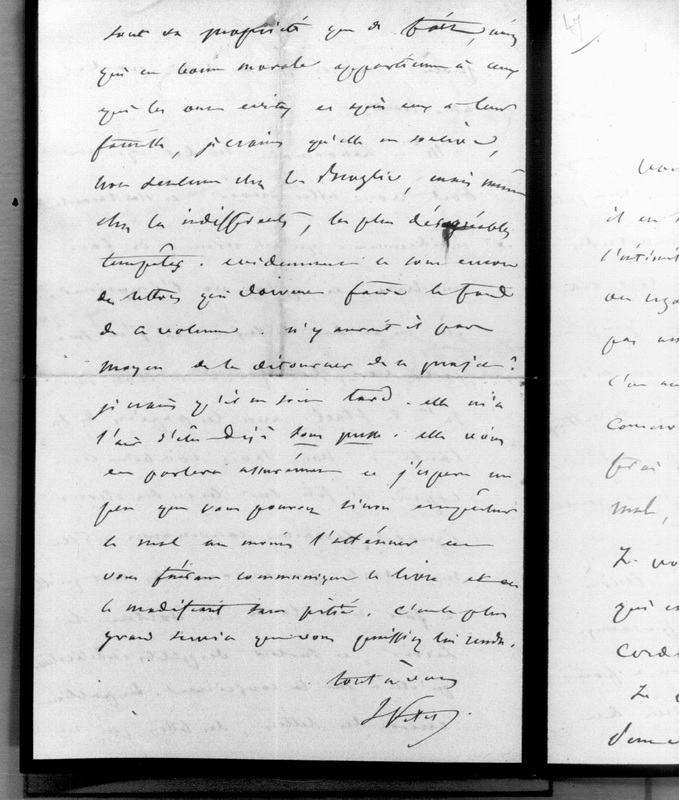 sont sa propriété que de fait, mais
qui en bonne morale appartiennent à ceux
qui les ont écrites et après eux à leur
famille, je crains qu'elle ne soulève,
non seulement chez les Broglie, mais même
chez les indifférents, les plus désagréables
tempêtes. évidemment ce sont encore
des lettres qui doivent faire le fond
de ce volume. n'y aurait il pas
moyen de la détourner de ce projet?
je crains qu'il ne soit tard. elle m'a
l'air d'être déjà sous presse. elle vous
en parlera assurément et j'espère un
peu que vous pourrez sinon empêcher
le mal au moins l'atténuer en
vous faisant communiquer le livre et en
le modifiant sans pitié. c'est le plus
grand service que vous puissiez lui rendre.
tout à vous
L Vitet
47
il en
l'intimité
pas
mal,
Je vo
qui es
Cordi
Je v